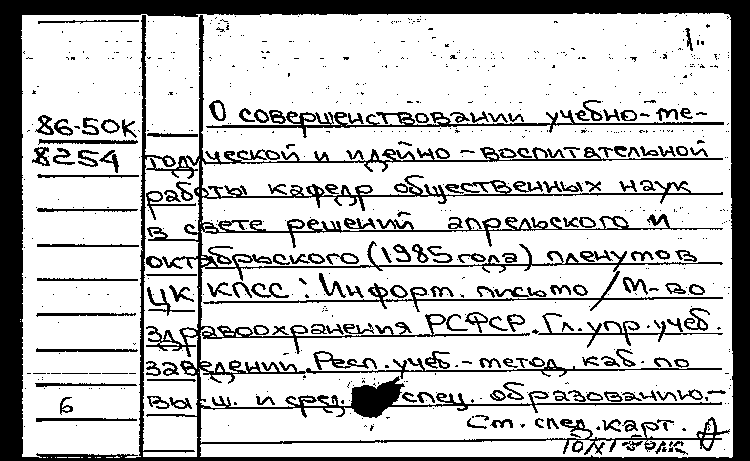 1
О совершенствовании учебно-ме-
86-50К
8254
тодической и идейно-воспитательной
работы кафедр общественных наук
в свете решений апрельского и
октябрьского (1985 года) пленумов
ЦК КПСС: Информ. письмо / М-во
здравоохранения РСФСР. Гл. упр. учеб.
заведений. Респ. учеб.-метод. каб. по
6
высш. и сред. спец. образованию.-
См. след. карт.
10/XI